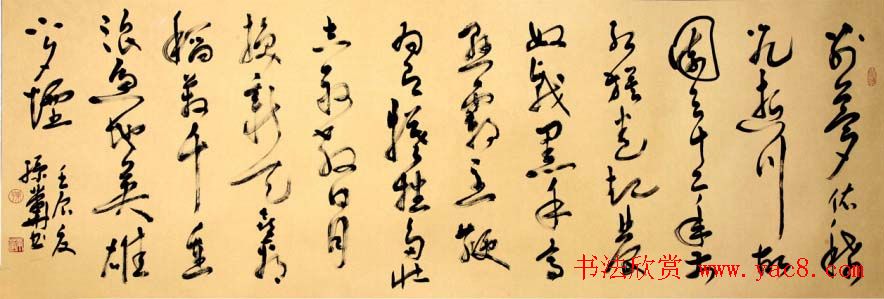 别夢依稀
咒逝川故
園三十二年前
紅旗卷起農
奴戟黑手高
懸霸主鞭
为有犧牲多壯
志敢教日月
換新天喜看
稻菽千重
浪遍地英雄
下夕煙
壬辰夏
书法欣赏
www.yac8.com